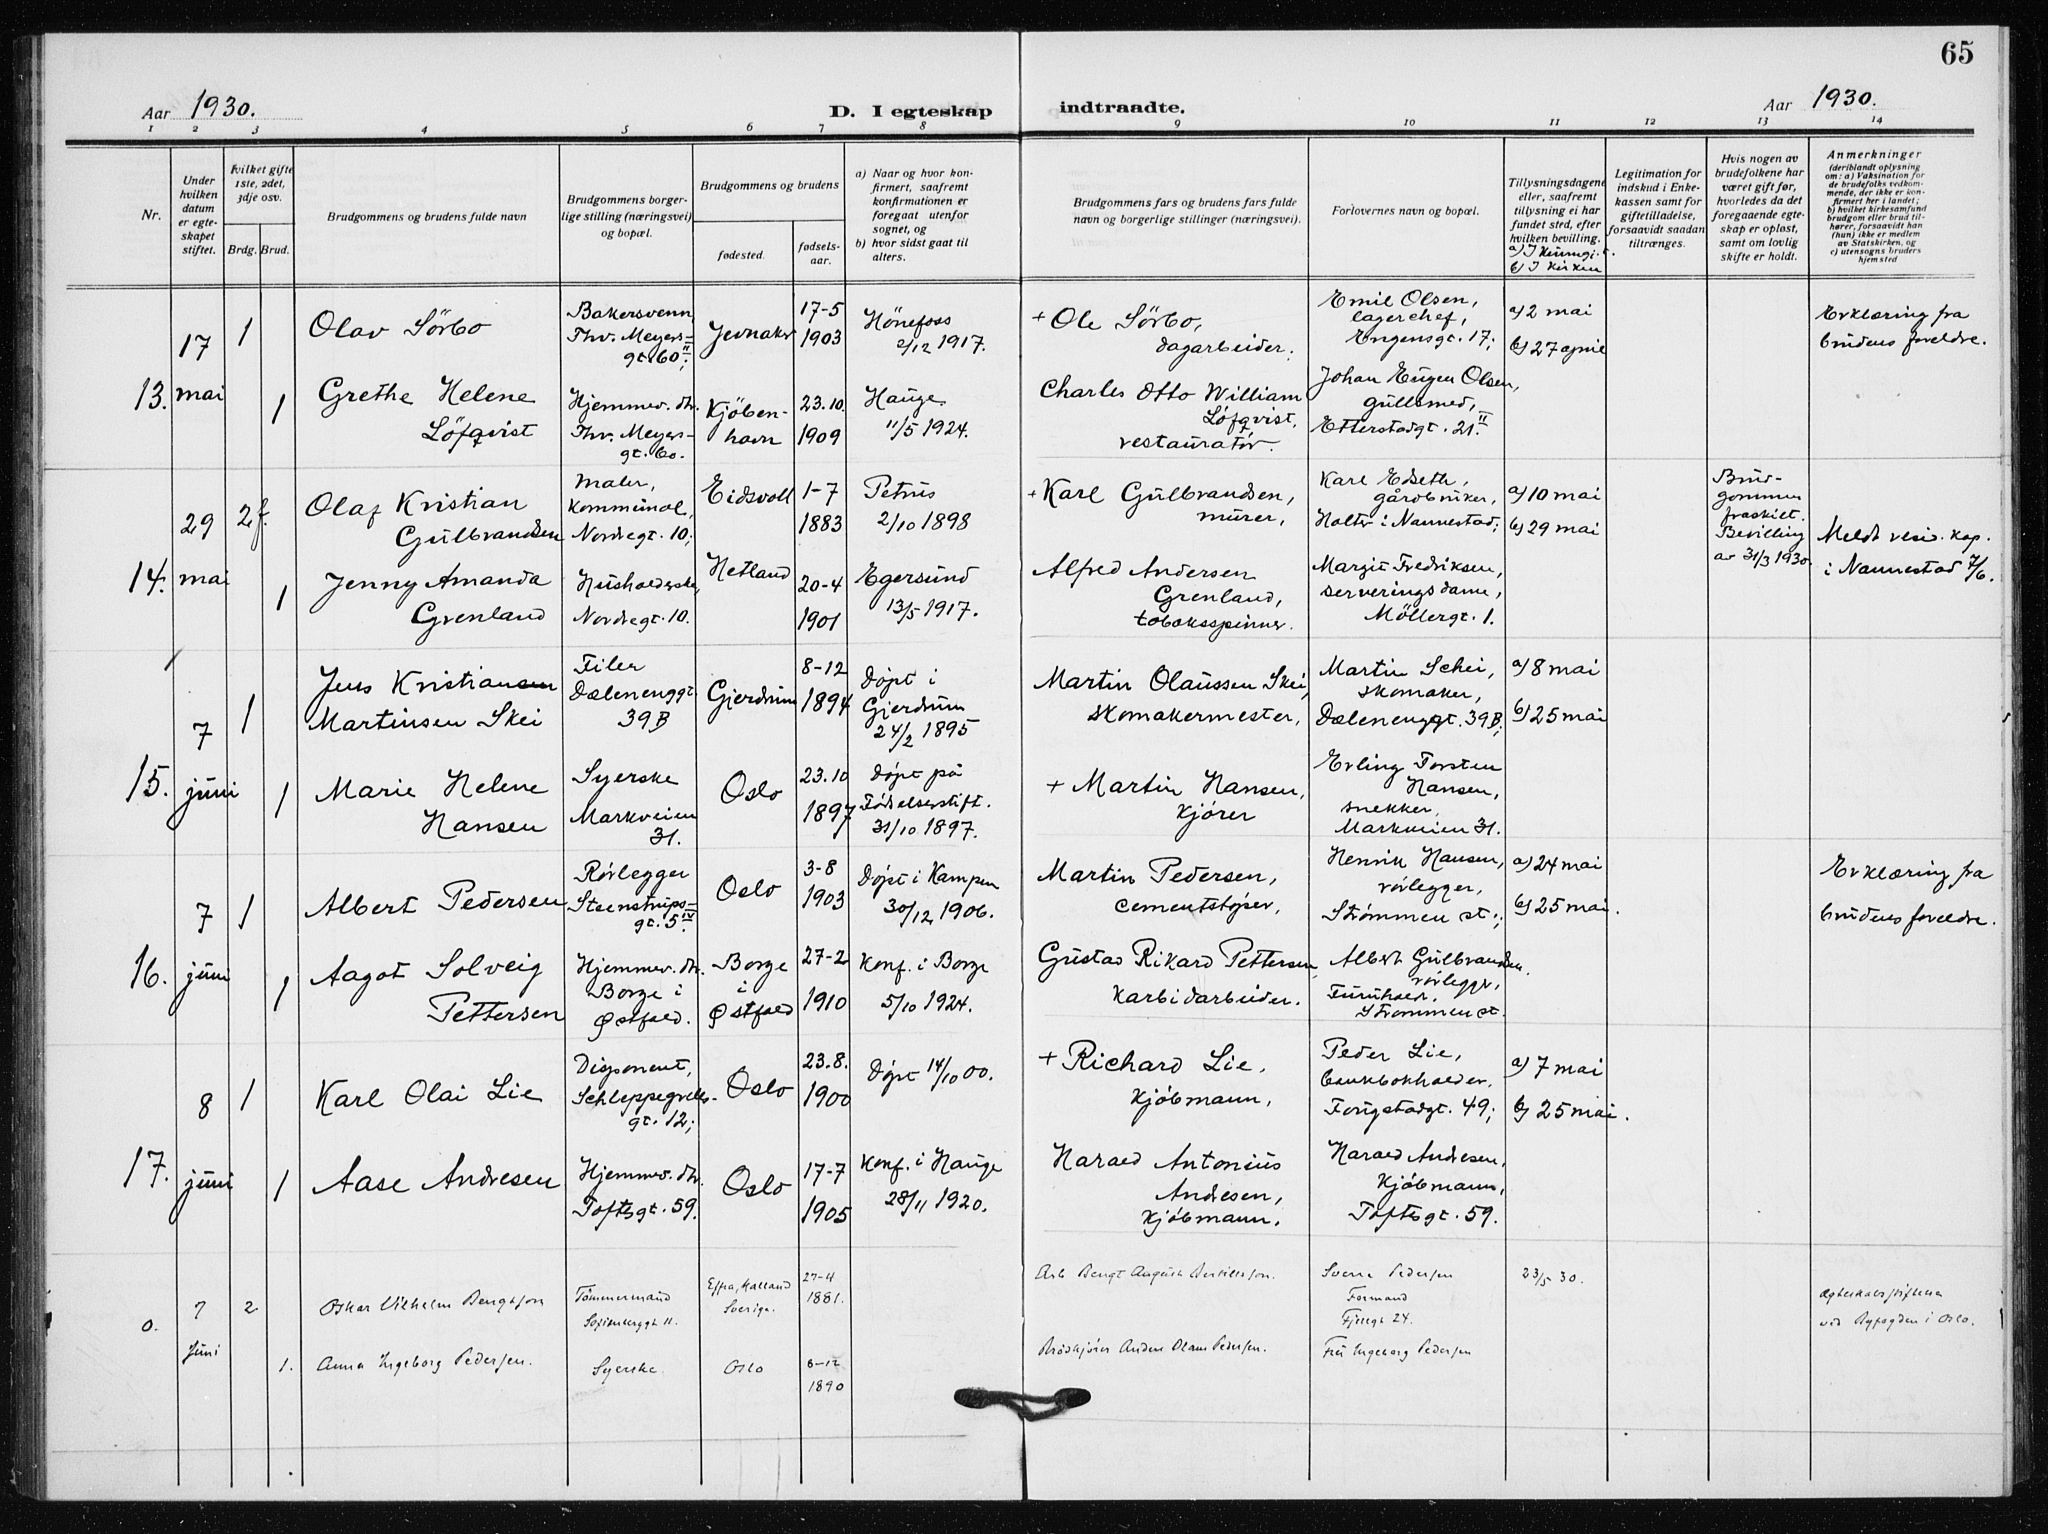 65
Aar 1930.
D. I egteskap indtraadte.
Aar 1930.
1 2 3 4 5 6 7 8 9 10 11 12 13 14
Nr.
Under hvilken datum er egteskapet stiftet.
Hvilket gifte 1ste, 2det, 3dje osv.
Brdg. Brud.
Brudgommens og brudens fulde navn
Brudgommens borgerlige stilling (næringsvei) og bopæl.
Brudgommens og brudens
fødested.
fødselsaar.
a) Naar og hvor konfirmert, saafremt konfirmationen er foregaat utenfor sognet, og
b) hvor sidst gaat til alters.
Brudgommens fars og brudens fars fulde navn og borgerlige stillinger (næringsvei).
Forlovernes navn og bopæl.
Tillysningsdagene eller, saafremt tillysning ei har fundet sted, efter hvilken bevilling.
b) I kirken
Legitimation for indskud i Enkekassen samt for giftetilladelse, forsaavidt saadan tiltrænges.
Hvis nogen av brudefolkene har været gift før, hvorledes da det foregaaende egteskap er opløst, samt om lovlig skifte er holdt.
Anmerkninger
(deriblandt oplysning om: a) Vaksination for de brudefolks vedkommende, der ikke er konfirmert her i landet; b) hvilket kirkesamfund brudgom eller brud tilhører, forsaavidt han (hun) ikke er medlem av Statskirken, og c) utensogns bruders hjemsted
13.
17 mai
1
Olav Sörbo
Bakersvenn,
Thv. Meyers-
gt. 60 II;
Jevnaker
17-5
1903
Hönefoss
2/12 1917.
+ Ole Sörbo,
dagarbeider.
Emil Olsen,
lagerchef,
Engensgt. 17;
a) 2 mai
b) 27 april
Erklæring fra
brudens foreldre.
1
Grethe Helene
Löfqvist
Hjemmev. dtr.
Thv. Meyers-
gt. 60.
Kjöben-
havn
23.10.
1909
Hauge
11/5 1924.
Charles Otto William
Löfqvist,
restauratör.
Johan Eugen Olsen,
gullsmed,
Etterstadgt. 21 II.
14.
29 mai
2 f.
Olaf Kristian
Gulbrandsen
Maler,
kommunal,
Nordregt. 10;
Eidsvoll
1-7
1883
Petrus
2/10 1898
+ Karl Gulbrandsen,
murer,
Karl Edseth,
gårdbruker,
Holter i Nannestad;
a) 10 mai
b) 29 mai
Brud-
gommen
fraskilt.
Bevilling
av 31/3 1930.
Meldt resid. kap.
i Nannestad 7/6.
1
Jenny Amanda
Grenland
Husholderske,
Nordregt. 10.
Hetland
20-4
1901
Egersund
13/5 1917.
Alfred Andersen
Grenland,
tobaksspinner.
Margit Fredriksen,
serveringsdame,
Möllergt. 1.
15.
7 juni
1
Jens Kristiansen
Martinsen Skei
Filer
Dælenenggt
39 B
Gjerdrum
8-12
1894
Døpt i
Gjerdrum
24/2 1895
Martin Olaussen Skei,
skomakermester,
Martin Schei,
skomaker,
Dælenenggt. 39 B;
a) 8 mai
b) 25 mai
1
Marie Helene
Hansen
Syerske
Markveien
31.
Oslo
23.10
1897
Døpt på
Fødselsstift.
31/10 1897.
+ Martin Hansen,
kjører
Erling Torsten
Hansen,
snekker,
Markveien 31.
16.
7 juni
1
Albert Pedersen
Rørlegger
Steenstrups-
gt. 5 IV.
Oslo
3-8
1903
Døpt i Kampen
30/12 1906.
Martin Pedersen,
cementstøper,
Henrik Hansen,
rørlegger,
Strømmen st.;
a) 24 mai
b) 25 mai.
Erklæring fra
brudens foreldre.
1
Aagot Solveig
Pettersen
Hjemmev. dtr.
Borge i
Østfold.
Borge
i
Østfold
27-2
1910
Konf. i Borge
5/10 1924.
Gustav Rikard Pettersen,
karbidarbeider.
Albert Gulbrandsen,
rørlegger,
Furuhold.
Strømmen st.
17.
8 juni
1
Karl Olai Lie
Disponent,
Schleppegrells-
gt. 12;
Oslo
23.8.
1900
Døpt 14/10 00.
+ Richard Lie,
kjøbmann,
Peder Lie,
bankbokholder,
49;
a) 7 mai
b) 25 mai.
1
Aase Andresen
Hjemmev. dtr.
Toftesgt. 59.
Oslo
17-7
1905
Konf. i Hauge
28/11 1920.
Harald Antonius
Andresen,
kjøbmann.
Harald Andresen,
kjøbmann,
Toftesgt. 59.
0.
7 Juni
2
Oskar Vilhelm Bengtson
Tømmermand
Sofienberggt 11.
Halland
Sverige.
27-4
1881.
Arb Bengt August
Sverre Pedersen
Formand
24.
23/5 30.
Egteskabsstiftelse
ved Byfogden i Oslo.
1.
Anna Ingeborg Pedersen.
Syerske.
Oslo
6-12
1890
Brødkjører Anders Olaus Pedersen.
Frk Ingeborg Pedersen